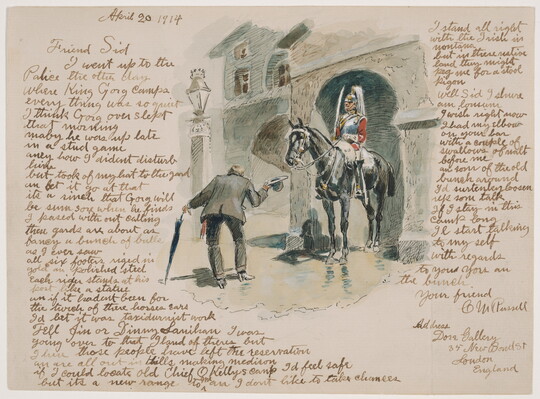 April 20 1914
Friend Sid
I went up to the
Palice the other day
where King Gorg camps
every thing was so quiet
I think Gorg over slept
that morning
maby he was up late
in a stud game
aney how I dident disturb
him
but took of my hat to the gard
an let it go at that
its a sinch that Gorg will
be sure sore when he finds
I passed with out calling
these gards are about as
fancy a bunch of bulls
as I ever saw
all six footers riged in
gold an polished steel
Each rider stands at his
post like a statue
un if it hadent been for
the twich of there horses ears
I'd bet it was taxidurmist work
Tell Jin or Dinny Lanihan I was
going over to that Iland of theres but
I hear those people have left the reservation
an are all out in hills making medison
if I could locate old Chief O Kellys camp I'd feel safe
but its a new range to me an I dont like to take chances
I stand all right
with the Irish in
montana
but in there native
land they might
peg me for a stool
pigon
Well Sid I shure
am lonsum
I wish right now
I had my elbow
on your bar
with a couple of
swallows of
before me
an som of the old
bunch around
I'd surtenly loosen
up som talk
if I stay in this
camp long
I'll start talking
to my self
with regards
to you an
the bunch
Your friend
C M Russell
Address
Dore Gallery
35 New Bond St
London
England